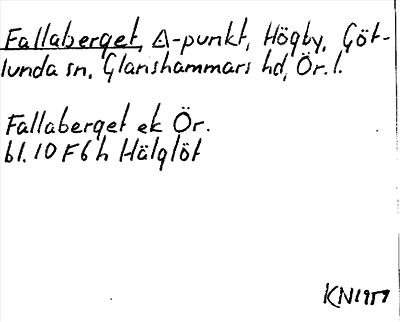 Fallaberget, △-punkt, Högby, Göt-
lunda sn, Glanshammars hd, Ör. l.
Fallaberget ek Ör.
bl. 10 F 6 h Hälglöt
KN 1959